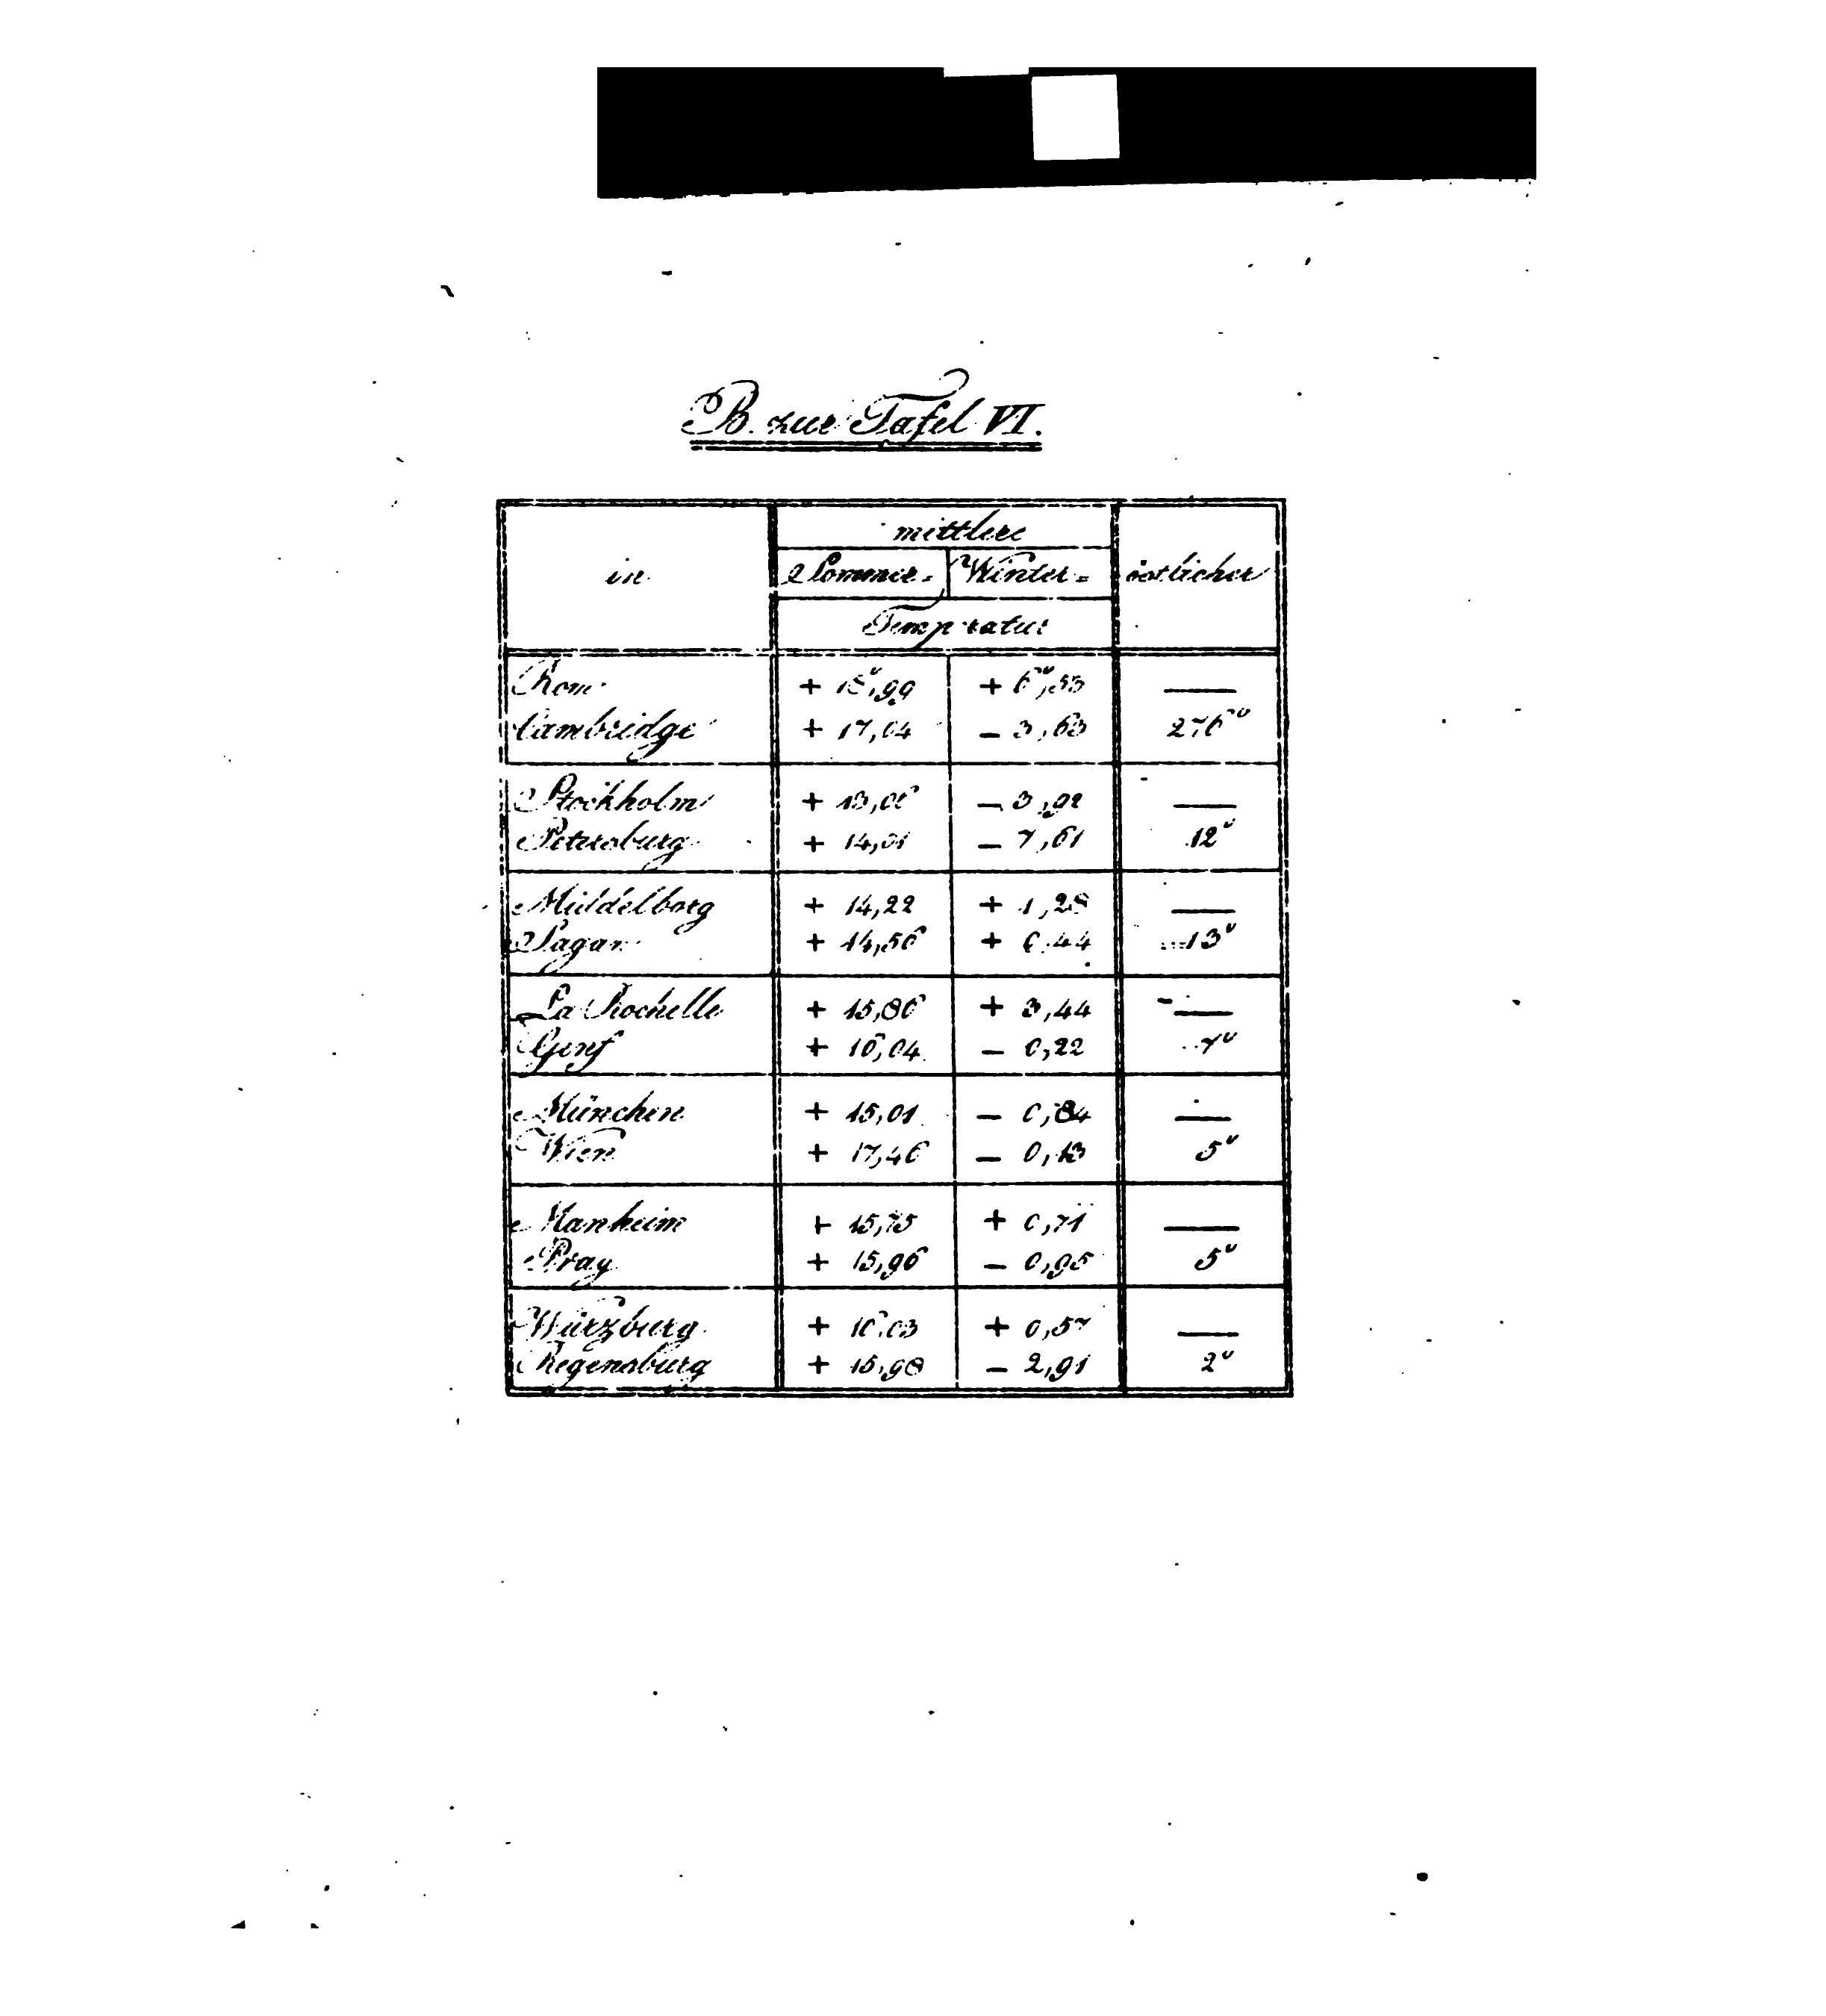 B. zur Tafel VI.
in
mittlere
Sommer- Winter-
Temperatur
östlicher
Rom + 18°,99 + 6°,53 —
Cambridge + 17,04 − 3,63 276°
Stockholm − 3,92 —
Petersburg + 14,01 − 7,61 12°
Middelborg + 14,22 + 1,28 —
Sagan + 14,56 + 0,44 13°
La Rochelle + 15,86 + 3,44 —
Genf + 16,04 − 0,22 7°
München + 15,01 − 0,84 —
Wien + 17,46 − 0,13 5°
Manheim + 15,75 + 0,71 —
Prag + 15,96 − 0,95 5°
Würzburg + 16,03 + 0,57 —
Regensburg + 15,98 − 2,91 2°